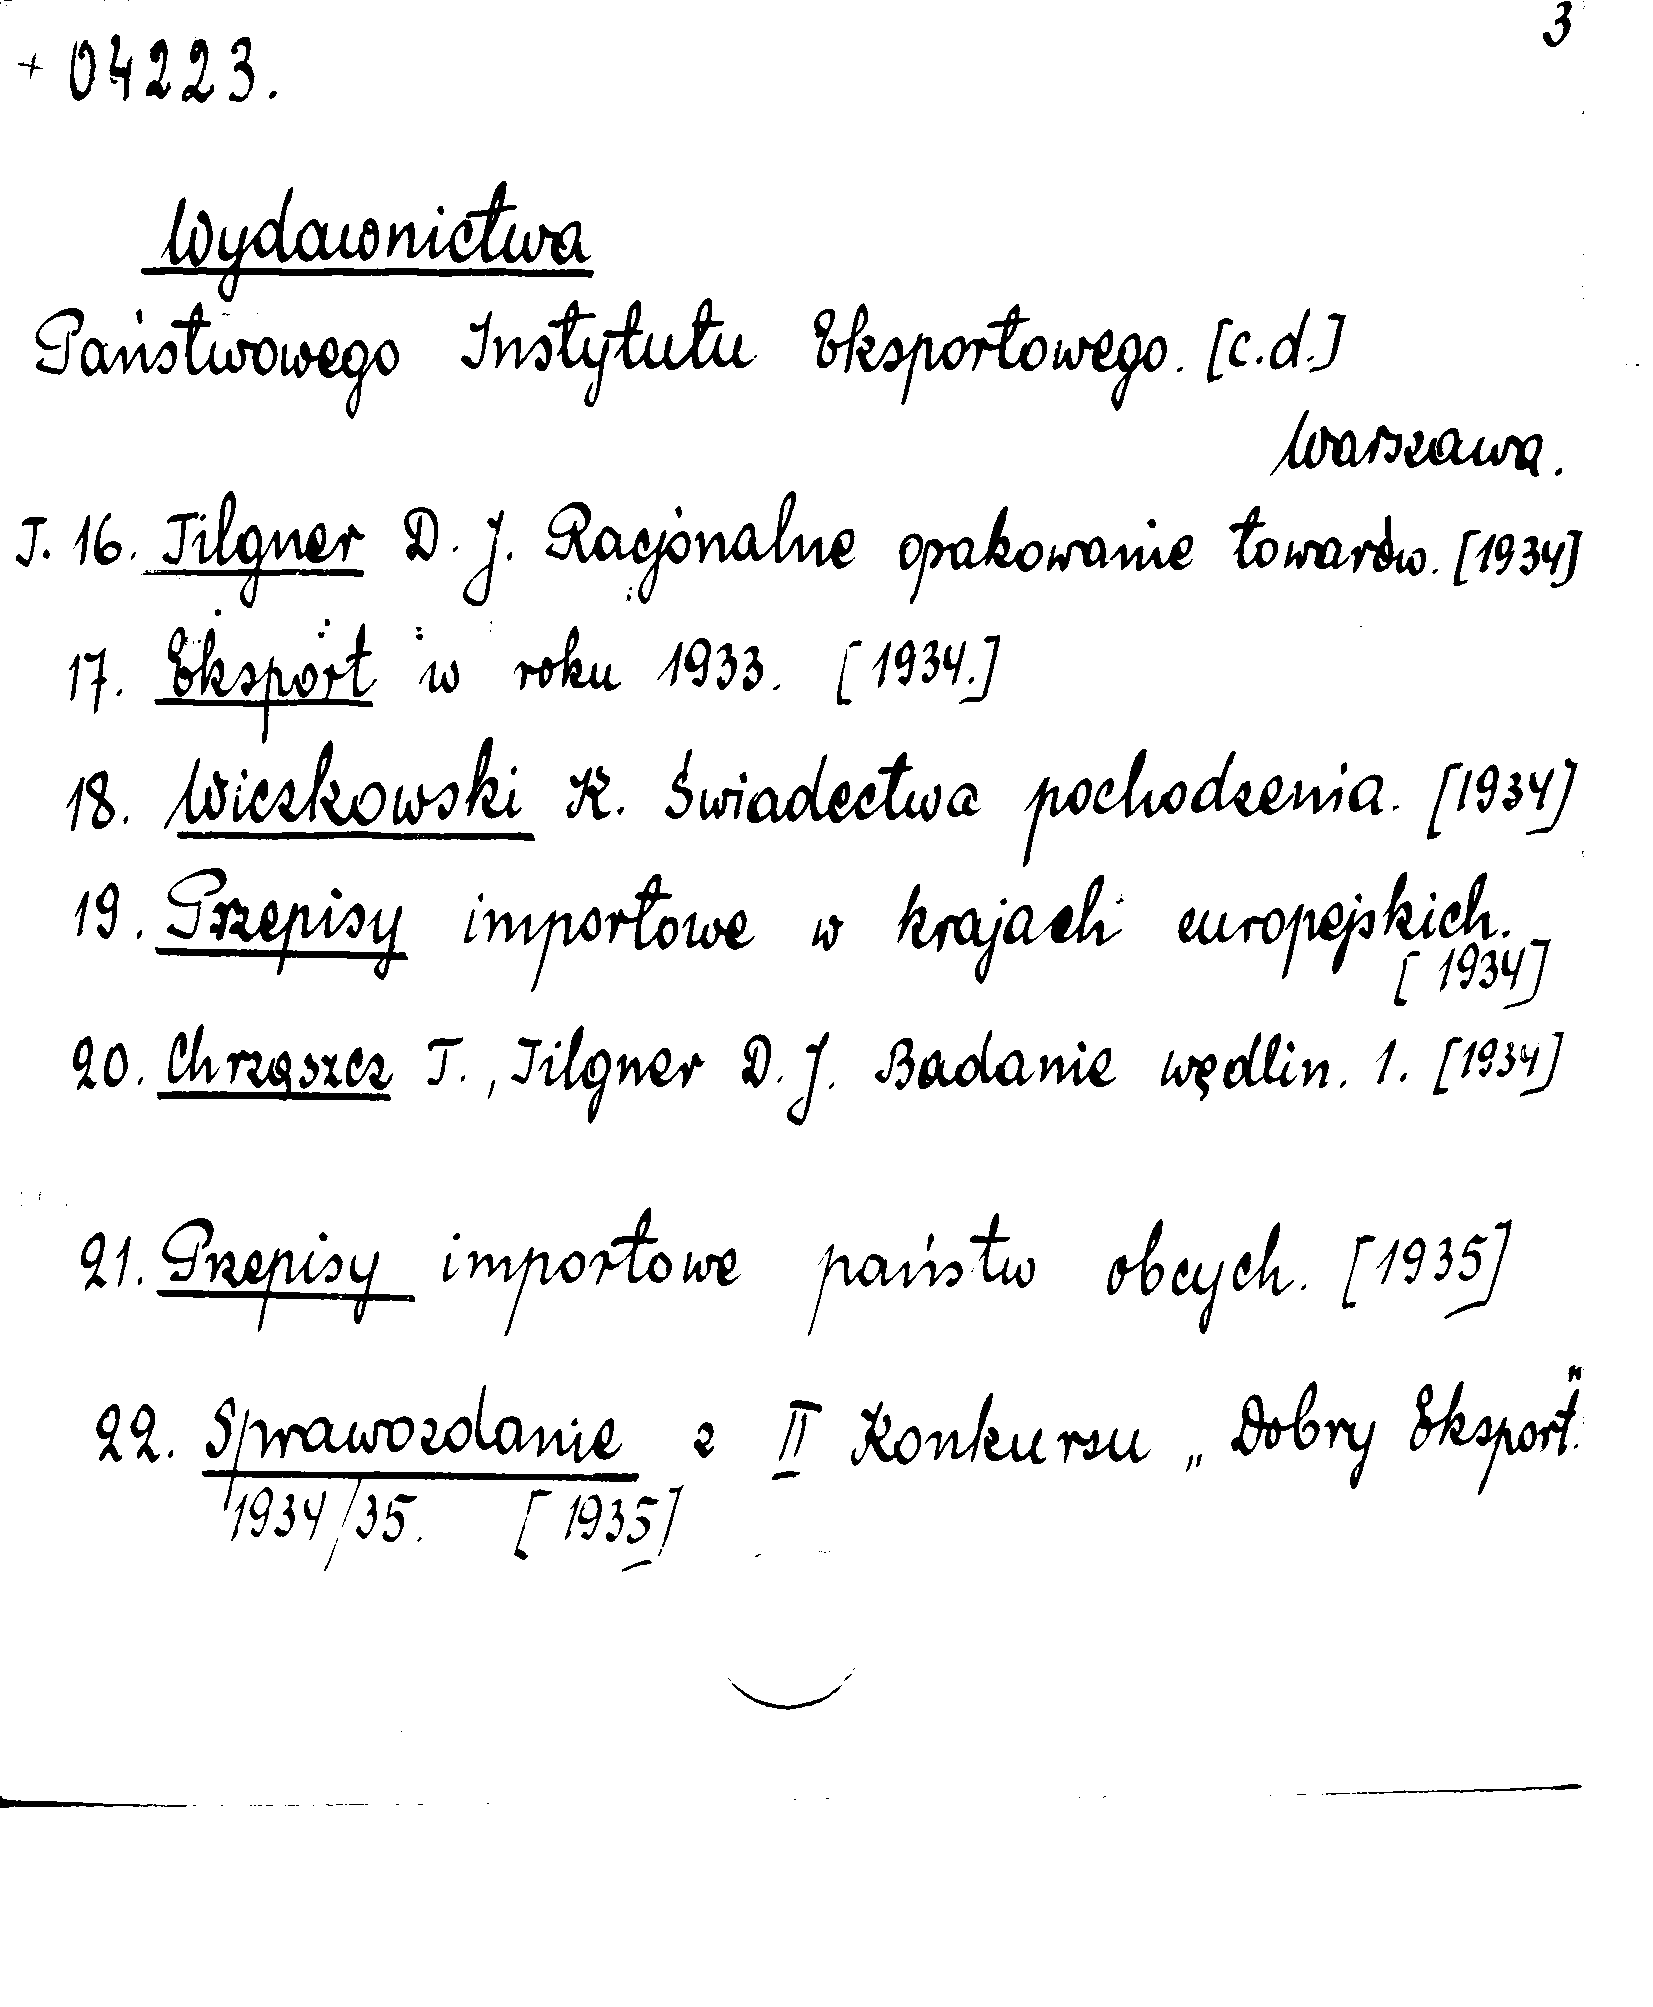 3
+ 04223.
Wydawnictwa
Państwowego Instytutu Eksportowego. [c.d.]
Warszawa.
T. 16. Tilgner D. J. Racjonalne opakowanie towarów. [1934]
17. Eksport w roku 1933. [1934.]
18. Wieszkowski K. Świadectwa pochodzenia. [1934]
19. Przepisy importowe w krajach europejskich.
[1934]
20. Chrząszcz T., Tilgner D. J. Badanie wędlin. 1. [1934]
21. Przepisy importowe państw obcych. [1935]
22. Sprawozdanie z II Konkursu „Dobry Eksport".
1934/35. [1935]